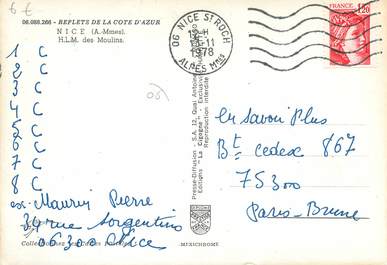 6 €
06.088.266 - REFLETS DE LA COTE D'AZUR
NICE (A.-Mmes).
H.L.M. des Moulins.
1 C
2 C
3 C
4 C
5 C
6 C
7 C
8 C
ex. Maurin Pierre
34 rue Sorgentino
06300 Nice
06
Presse-Diffusion - S.A. 12, Quai Antoine
Editions "La Cigogne"
Reproduction interdite
MEXICHROME
06 NICE ST ROCH
-11
1978
ALPES Mmes
FRANCE
1,20
En savoir Plus
Bt cedex 867
75300
Paris-Brune